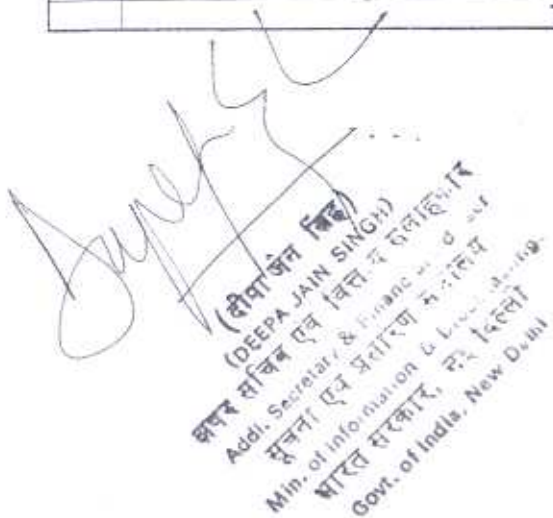 (दीपा जैन सिंह)
(DEEPA JAIN SINGH)
अपर सचिव एवं वित्तीय सलाहकार
Addl. Secretary & Financ
सूचना एवं प्रसारण मंत्रालय
Min. of Information &
भारत सरकार, नई दिल्ली
Govt. of India, New Delhi